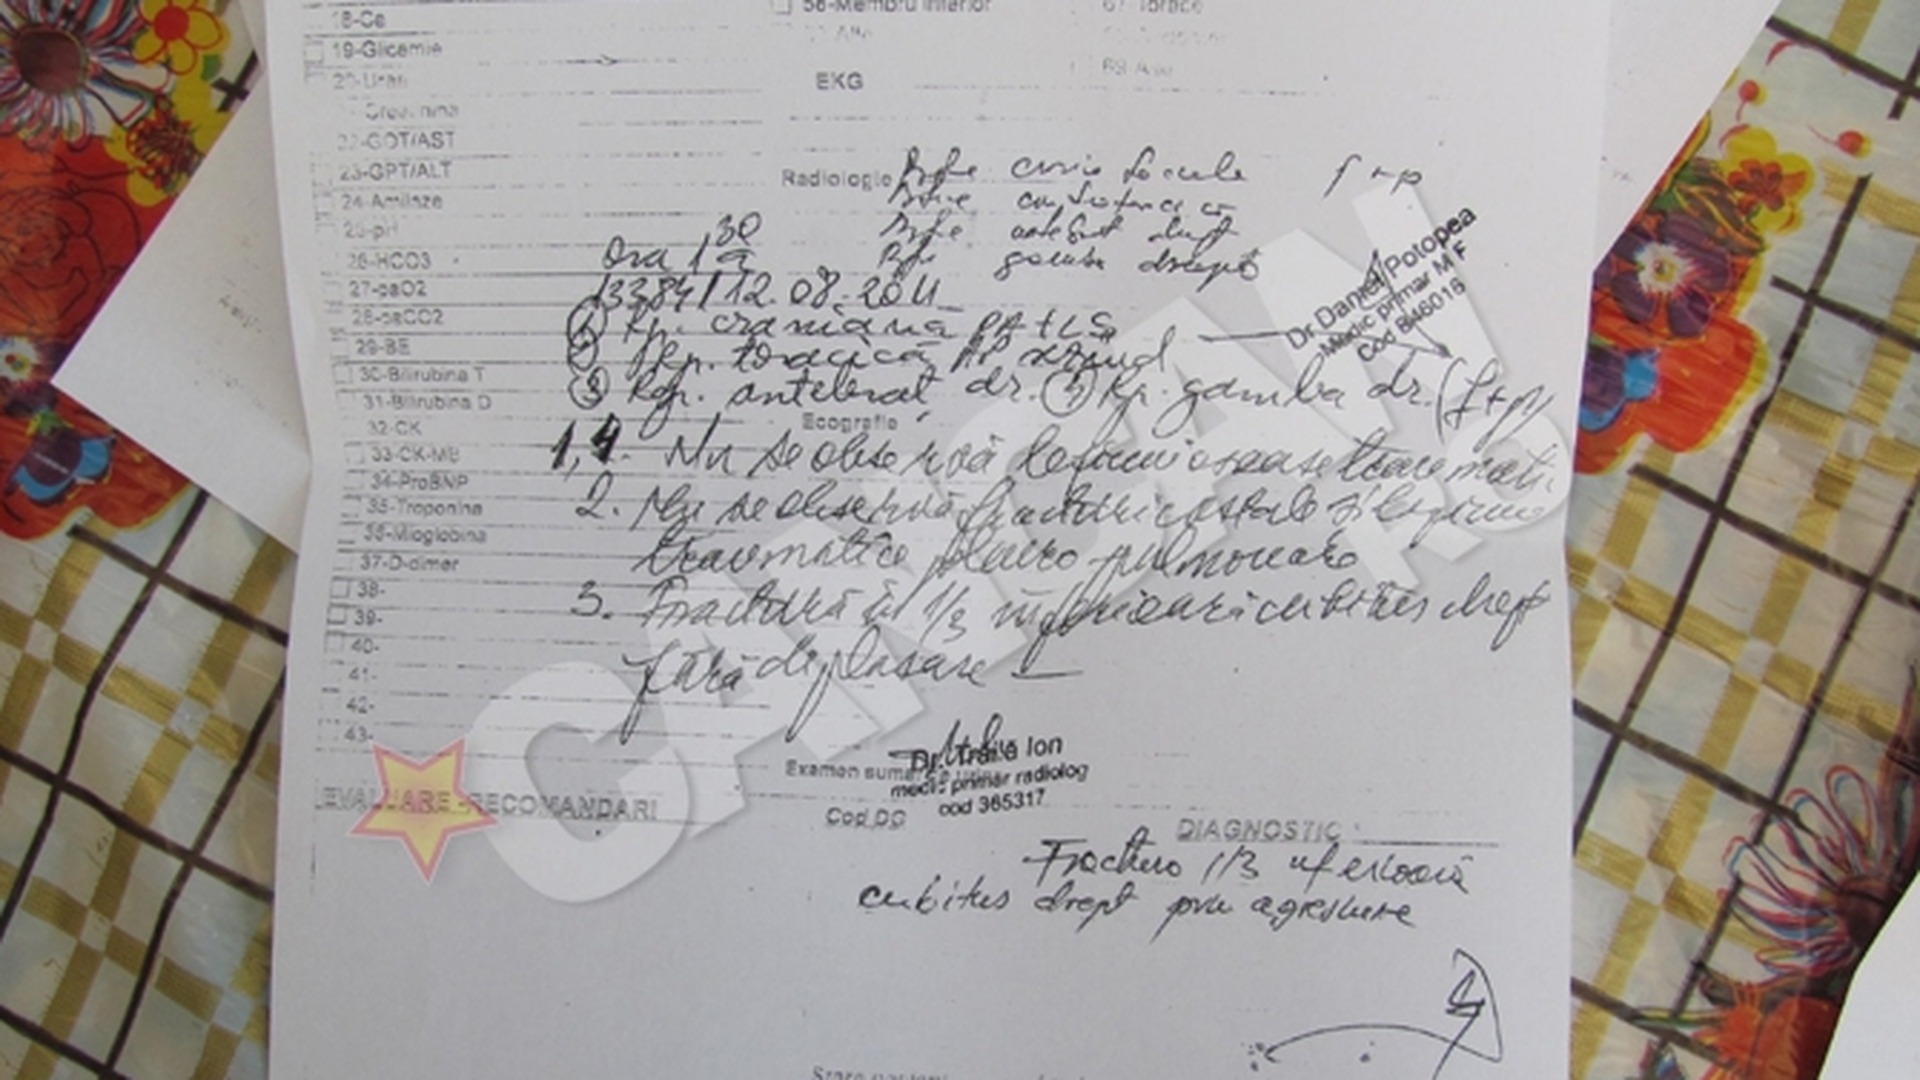 18-Ca
58-Membru inferior
67-Torace
19-Glicemie
20-Uree
EKG
Creatinina
22-GOT/AST
23-GPT/ALT
Radiologie Rgfie f+p
24-Amilaza
25-pH
Rgfie antebrat drept
26-HCO3
Ora 1 30
Rgfie gamba dreapta
27-paO2
13384/12.08.2011
28-paCO2
① Rgr. craniana PA+LS
Dr. Daniel Potopea
Medic primar MF
Cod 846016
29-BE
② Rgr. toracică AP
30-Bilirubina T
③ Rgr. antebrat dr. ④ Rgr. gamba dr. (f+p)
31-Bilirubina D
Ecografie
32-CK
1,4. Nu se observă leziuni osoase traumatice
33-CK-MB
34-ProBNP
2. Nu se observă fracturi costale si leziuni
35-Troponina
36-Mioglobina
traumatice pleuro-pulmonare
37-D-dimer
38-
3. Fractură în 1/3 inferioară cubitus drept
39-
40-
fără deplasare
41-
42-
43-
Dr. Traila Ion
medic primar radiolog
cod 365317
Examen sumar
EVALUARE-RECOMANDARI
Cod DG
DIAGNOSTIC
Fractura 1/3 inferioară
cubitus drept prin agresiune
CANCAN
.RO